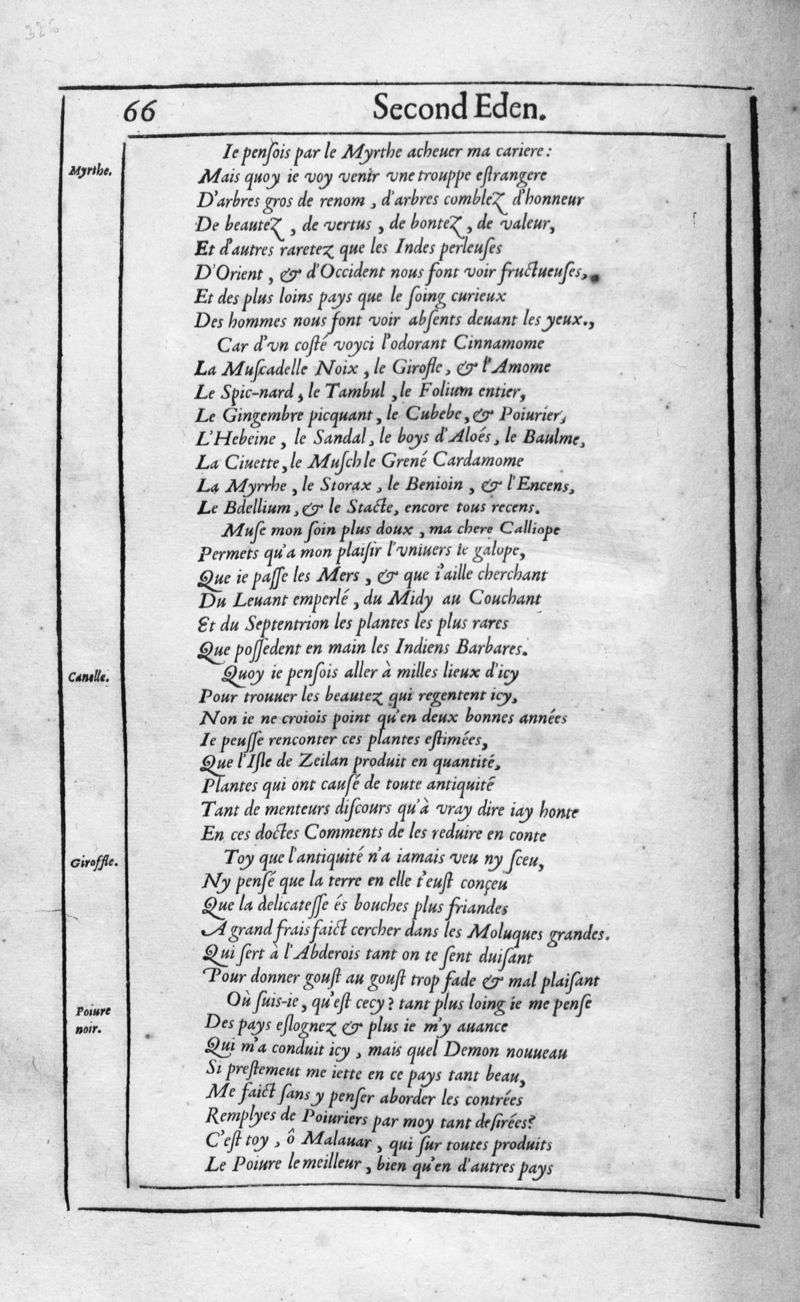 326
66 Second Eden.
Ie penſois par le Myrthe acheuer ma cariere:
Myrthe.
Mais quoy ie voy venir vne trouppe eſtrangere
D'arbres gros de renom, d'arbres comblez d'honneur
De beautez, de vertus, de bontez, de valeur,
Et d'autres raretez que les Indes perleuſes
D'Orient, & d'Occident nous font voir fructueuſes,
Et des plus loins pays que le ſoing curieux
Des hommes nous font voir abſents deuant les yeux.,
Car d'vn coſté voycy l'odorant Cinnamome
La Muſcadelle Noix, le Girofle, & l'Amome
Le Spic-nard, le Tambul, le Folium entier,
Le Gingembre picquant, le Cubebe, & Poiurier,
L'Hebeine, le Sandal, le boys d'Aloés, le Baulme,
La Ciuette, le Muſch le Grené Cardamome
La Myrrhe, le Storax, le Benioin, & l'Encens,
Le Bdellium, & le Stacte, encore tous recens.
Muſe mon ſoin plus doux, ma chere Calliope
Permets qu'a mon plaiſir l'vniuers ie galope,
Que ie paſſe les Mers, & que i'aille cherchant
Du Leuant emperlé, du Midy au Couchant
Et du Septentrion les plantes les plus rares
Que poſſedent en main les Indiens Barbares.
Quoy ie penſois aller à milles lieux d'icy
Canelle.
Pour trouuer les beautez qui regentent icy,
Non ie ne croiois point qu'en deux bonnes années
Ie peuſſe renconter ces plantes eſtimées,
Que l'Iſle de Zeilan produit en quantité,
Plantes qui ont cauſé de toute antiquité
Tant de menteurs diſcours qu'à vray dire iay honte
En ces doctes Comments de les reduire en conte
Toy que l'antiquité n'a iamais veu ny ſceu,
Giroffle.
Ny penſé que la terre en elle t'euſt conçeu
Que la delicateſſe és bouches plus friandes
A grand frais faict cercher dans les Moluques grandes.
Qui ſert à l'Abderois tant on te ſent duiſant
Pour donner gouſt au gouſt trop fade & mal plaiſant
Où ſuis-ie, qu'eſt cecy? tant plus loing ie me penſe
Poiure
noir.
Des pays eſlognez & plus ie m'y auance
Qui m'a conduit icy, mais quel Demon nouueau
Si preſtemeut me iette en ce pays tant beau,
Me faict ſans y penſer aborder les contrées
Remplyes de Poiuriers par moy tant deſirées?
C'eſt toy, ô Malauar, qui ſur toutes produits
Le Poiure le meilleur, bien qu'en d'autres pays